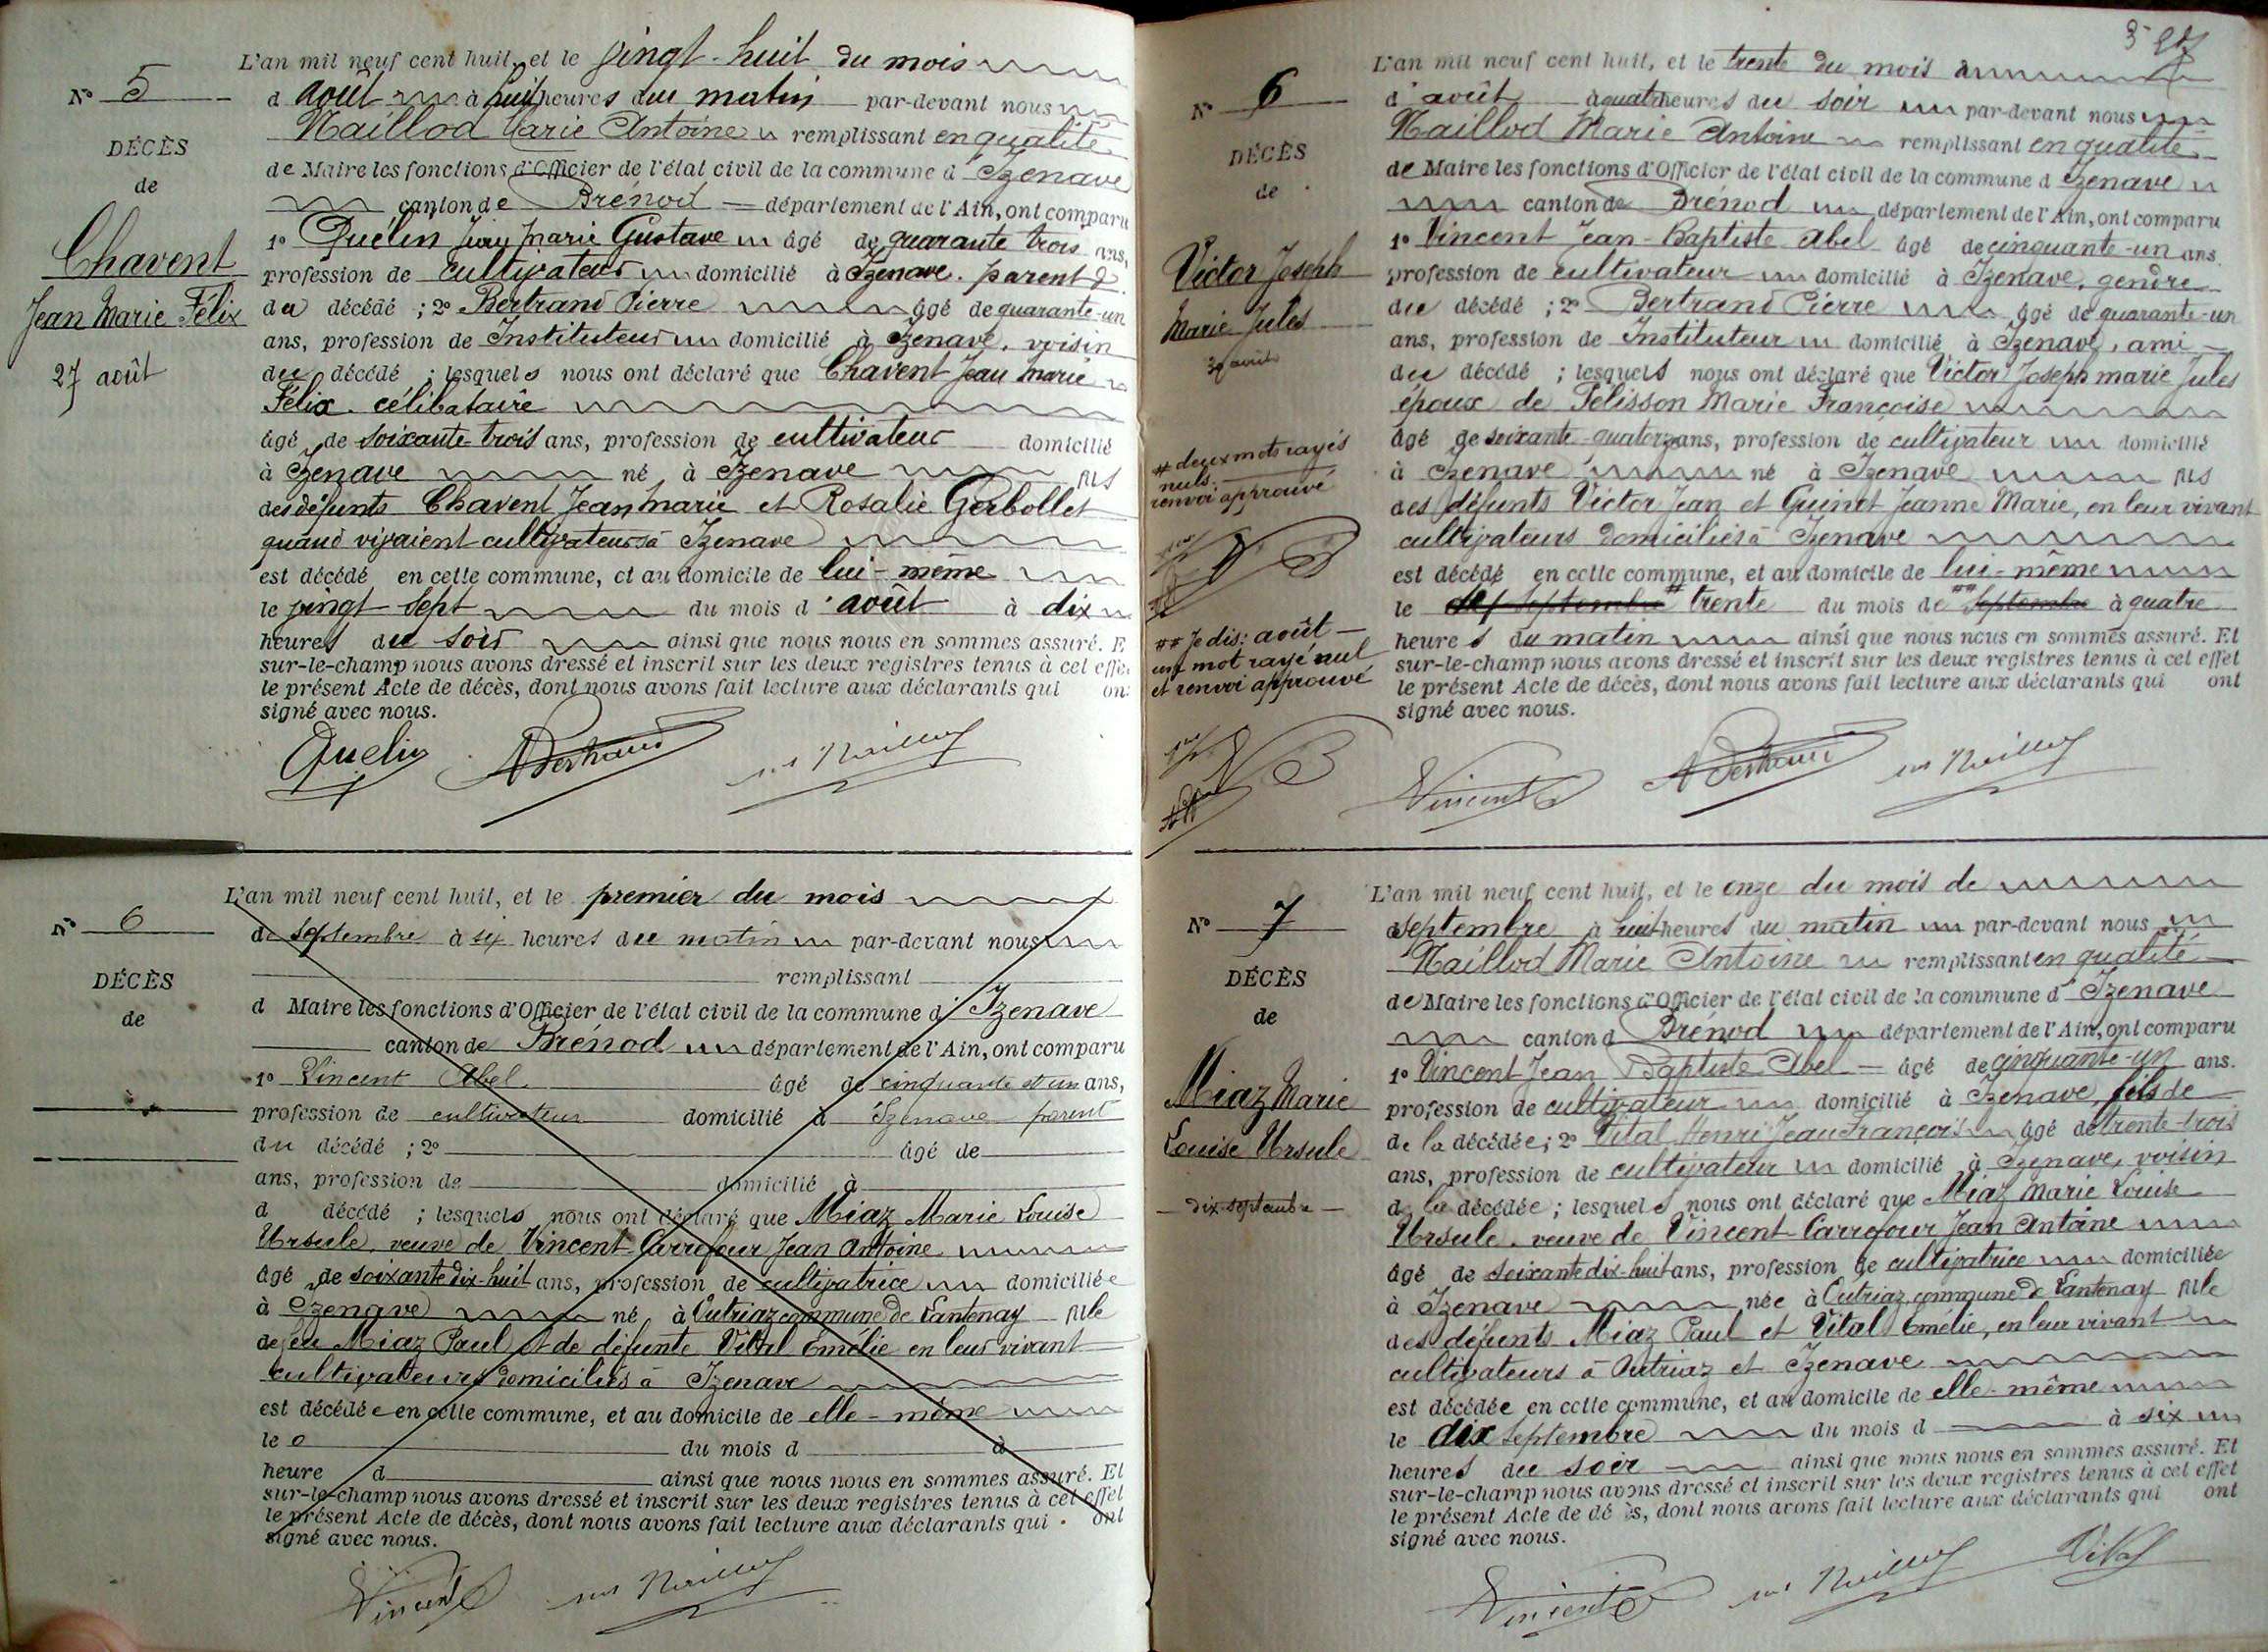 N° 5
DÉCÈS
de
Chavent
Jean Marie Félix
27 août
L'an mil neuf cent huit, et le vingt-huit du mois
d août à huit heures du matin par-devant nous
Maillod Marie Antoine remplissant en qualité
de Maire les fonctions d'Officier de l'état civil de la commune d Izenave
canton de Brénod département de l'Ain, ont comparu
1° Quelin Jury Marie Gustave âgé de quarante trois ans,
profession de cultivateur domicilié à Izenave. parent
du décédé ; 2° Bertrand Pierre âgé de quarante-un
ans, profession de Instituteur domicilié à Izenave, voisin
du décédé ; lesquels nous ont déclaré que Chavent Jean Marie
Félix célibataire
âgé de soixante-trois ans, profession de cultivateur domicilié
à Izenave né à Izenave fils
des défunts Chavent Jean Marie et Rosalie Gerbollet
quand vivaient cultivateurs à Izenave
est décédé en cette commune, et au domicile de lui-même
le vingt sept du mois d'août à dix
heures du soir ainsi que nous nous en sommes assuré. E
sur-le-champ nous avons dressé et inscrit sur les deux registres tenus à cet effe
le présent Acte de décès, dont nous avons fait lecture aux déclarants qui on
signé avec nous.
Quelin
N° 6
DÉCÈS
de
L'an mil neuf cent huit, et le premier du mois
de septembre à six heures du matin par-devant nous
remplissant
d Maire les fonctions d'Officier de l'état civil de la commune d' Izenave
canton de Brénod département de l'Ain, ont comparu
1° Vincent Abel âgé de cinquante et un ans,
profession de cultivateur domicilié à Izenave parent
du décédé ; 2° âgé de
ans, profession de domicilié à
d décédé ; lesquels nous ont déclaré que Miaz Marie Louise
Ursule, veuve de Vincent-Carrefour Jean Antoine
âgé de soixante dix-huit ans, profession de cultivatrice domiciliée
à Izenave né à Outriaz commune de Lantenay fille
de feu Miaz Paul et de défunte Vital Emélie en leur vivant
cultivateurs domiciliés à Izenave
est décédée en cette commune, et au domicile de elle-même
le du mois d à
heure d ainsi que nous nous en sommes assuré. Et
sur-le-champ nous avons dressé et inscrit sur les deux registres tenus à cet effet
le présent Acte de décès, dont nous avons fait lecture aux déclarants qui ont
signé avec nous.
Vincent
N° 6
DÉCÈS
de
Victor Joseph
Marie Jules
30 août
# deux mots rayés
nuls.
renvoi approuvé
## Je dis: août
un mot rayé nul
et renvoi approuvé
L'an mil neuf cent huit, et le trente du mois
d'août à quatre heures du soir par-devant nous
Maillod Marie Antoine remplissant en qualité
de Maire les fonctions d'Officier de l'état civil de la commune d Izenave
canton de Brénod département de l'Ain, ont comparu
1° Vincent Jean-Baptiste Abel âgé de cinquante-un ans.
profession de cultivateur domicilié à Izenave, gendre
du décédé ; 2° Bertrand Pierre âgé de quarante-un
ans, profession de Instituteur domicilié à Izenave, ami
du décédé ; lesquels nous ont déclaré que Victor Joseph marie Jules
époux de Pélisson Marie Françoise
âgé de soixante-quatorze ans, profession de cultivateur domicilié
à Izenave né à Izenave fils
des défunts Victor Jean et Guinet Jeanne Marie, en leur vivant
cultivateurs domiciliés à Izenave
est décédé en cette commune, et au domicile de lui-même
le # trente du mois de ## septembre à quatre
heures du matin ainsi que nous nous en sommes assuré. Et
sur-le-champ nous avons dressé et inscrit sur les deux registres tenus à cet effet
le présent Acte de décès, dont nous avons fait lecture aux déclarants qui ont
signé avec nous.
Vincent
N° 7
DÉCÈS
de
Miaz Marie
Louise Ursule
dix septembre
L'an mil neuf cent huit, et le onze du mois de
septembre à huit heures du matin par-devant nous
Maillod Marie Antoine remplissant en qualité
de Maire les fonctions d'Officier de l'état civil de la commune d' Izenave
canton d Brénod département de l'Ain, ont comparu
1° Vincent Jean Baptiste Abel âgé de cinquante-un ans.
profession de cultivateur domicilié à Izenave, fils de
de la décédée ; 2° Vital Henri Jean François âgé de trente-trois
ans, profession de cultivateur domicilié à Izenave, voisin
de la décédée ; lesquels nous ont déclaré que Miaz Marie Louise
Ursule, veuve de Vincent-Carrefour Jean Antoine
âgé de soixante dix-huit ans, profession de cultivatrice domiciliée
à Izenave née à Outriaz commune de Lantenay fille
des défunts Miaz Paul et Vital Emélie, en leur vivant
cultivateurs à Outriaz et Izenave
est décédée en cette commune, et au domicile de elle-même
le dix septembre du mois d à six
heures du soir ainsi que nous nous en sommes assuré. Et
sur-le-champ nous avons dressé et inscrit sur les deux registres tenus à cet effet
le présent Acte de dé ès, dont nous avons fait lecture aux déclarants qui ont
signé avec nous.
Vincent
Vital